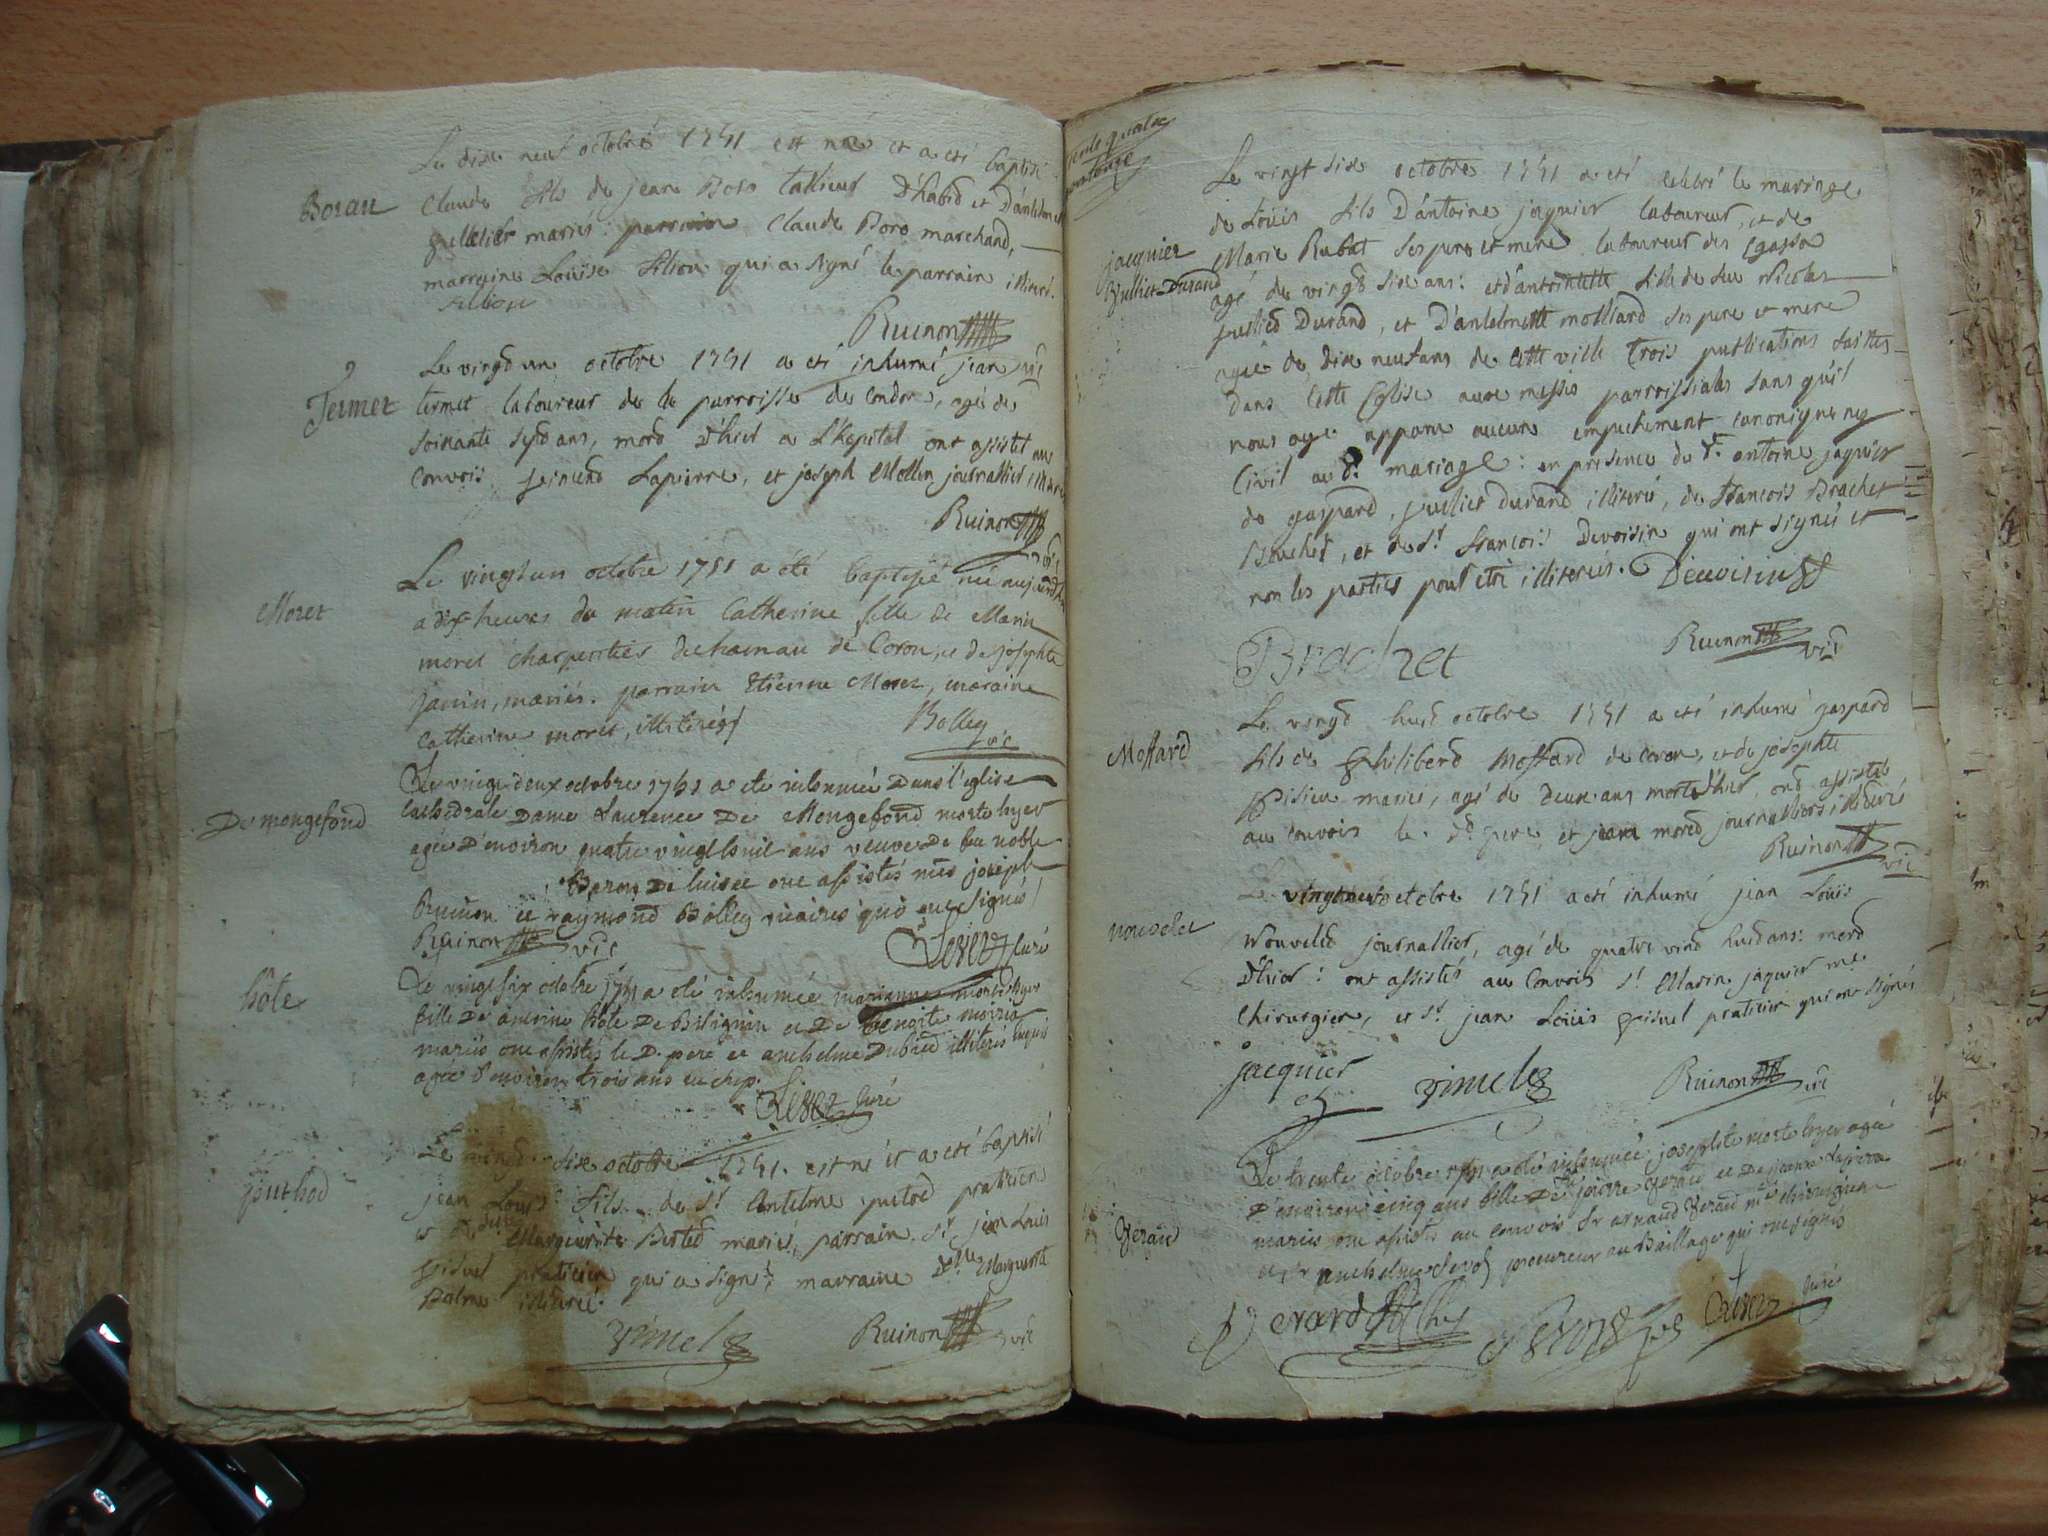 Boran
Le dixe neuf octobre 1751 est né et a eté baptisé
Claude fils de jean Boro tallieur D'habid et D'antelmete
pelletier mariés: parrain Claude Boro marchand,
marraine Loüise fillion qui a signé le parrain illiteré.
fillion
Ruinon vic
Termet
Le vingd un octobre 1751 a eté inhumé jean
termet laboureur de la parroisse de Condon, agé de
soixante sepd ans, mord D'hier a L'hopital ont assistet au
Convois Lapierre, et joseph Mollin journallier
Ruinon
vic
Moret
Le vingt un octobre 1751 a eté baptisée née aujourd'huy
a dix heures du matin Catherine fille de Marin
moret charpentier du hameau de Coron, et de josephte
janin, mariés. parrain Etienne Moret, maraine
Catherine moret, illiterés
Bolley vic
De mongefond
Le vingt deux octobre 1751 a eté inhumée Dans l'eglise
Cathedrale Dame Laurence De Mongefond morte hyer
agée D'environ quatre vingt huit ans veuve De feu noble
Baron De luisee ont assistés mes joseph
Ruinon et raymond Bolley vicaires qui ont signés
Ruinon vic
curé
hôte
Le vingt six octobre 1751 a eté inhumée marianne morte hyer
fille De antoine hôte De Bilignin et De Benoite
mariés ont assistés le D. pere et anthelme Dubied illiterés
agée d'environ trois ans
curé
puthod
Le vingd sixe octobre 1751. est né et a eté baptisé
jean Louis fils de Sr Antelme putod praticien
et de Marguerite mariés, parrain Sr jean Louis
praticien qui a signé, marraine Dlle Marguerite
Balme illiterée.
Ruinon vic
jacquier
Julliet Durand
Le vingt sixe octobre 1751 a eté celebré le mariage
de Loüis fils D'antoine jaquier laboureur, et de
Marie Rubat ses pere et mere laboureur des
agé de vingd sixe ans: et d'antoinette fille de feu Nicolas
julied Durand, et D'antelmette molliard ses pere et mere
agée de dixe neuf ans de cette ville trois publications faittes
dans cette Eglise aux messes parroissiales sans qu'il
nous aye apparu aucun empechement canonique ny
Civil au d. mariage: en presence du dt. antoine jaquier
de gaspard, juliet durand illiteré, de francois Brachet
Boucher, et de Sr francois Devoisin qui ont signés et
non les parties pour etre illiterées. Devoisin
Brachet
Ruinon vic
Moffard
Le vingd huid octobre 1751 a eté inhumé gaspard
fils de philiberd Moffard de Coron, et de josephte
mariés, agé de deux ans mort D'hier, ond assistés
au convois le dt. pere, et jean mored journalliers illiterés
Ruinon vic
nouvelet
Le vingt neuf octobre 1751 a eté inhumé jean Loüis
Nouveled journallier, agé de quatre vind huid ans: mord
D'hier: ont assistés au Convois Sr Marin jaquier me
Chirurgien, et Sr jean Loüis praticien qui ont signés
jacquier
Ruinon vic
Verau
Le trente octobre 1751 a eté inhumée josephte morte hyer agée
D'environ cinq ans fille De Sr pierre Verau et De jeanne Lapierre
mariés ont assistés au convois Sr arnaud Verau me chirurgien
et Sr anthelme procureur au Baillage qui ont signés
curé